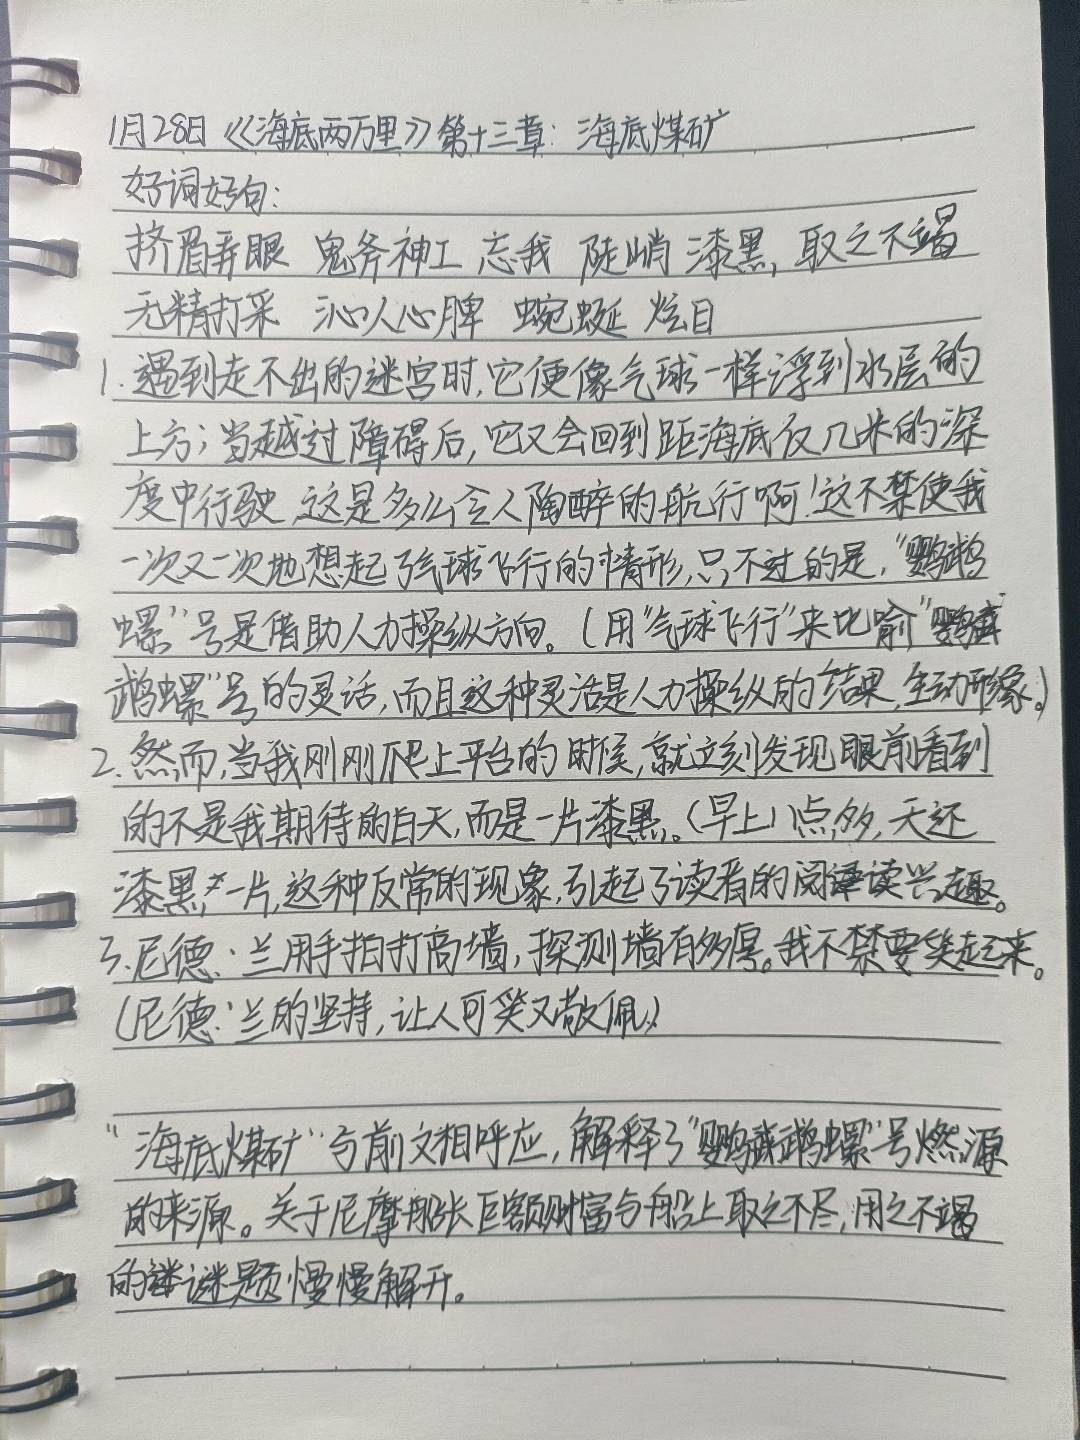 1月28日《海底两万里》第十三章：海底煤矿
好词好句：
挤眉弄眼 鬼斧神工 忘我 陡峭 漆黑 取之不竭
无精打采 沁人心脾 蜿蜒 炫目
1.遇到走不出的迷宫时,它便像气球一样浮到水层的
上方；当越过障碍后,它又会回到距海底仅几米的深
度中行驶,这是多么令人陶醉的航行啊!这不禁使我
一次又一次地想起了气球飞行的情形,只不过的是,“鹦鹉
螺”号是借助人力操纵方向。(用“气球飞行”来比喻“鹦
鹉螺”号的灵活,而且这种灵活是人力操纵的结果,生动形象。)
2.然而,当我刚刚爬上平台的时候,就立刻发现眼前看到
的不是我期待的白天,而是一片漆黑。(早上11点多,天还
漆黑一片,这种反常的现象,引起了读者的阅读兴趣。
3.尼德·兰用手拍打高墙,探测墙有多厚。我不禁要笑起来。
(尼德·兰的坚持,让人可笑又敬佩。)
“海底煤矿”与前文相呼应,解释了“鹦鹉螺”号燃源
的来源。关于尼摩船长巨额财富与船上取之不尽,用之不竭
的谜题慢慢解开。